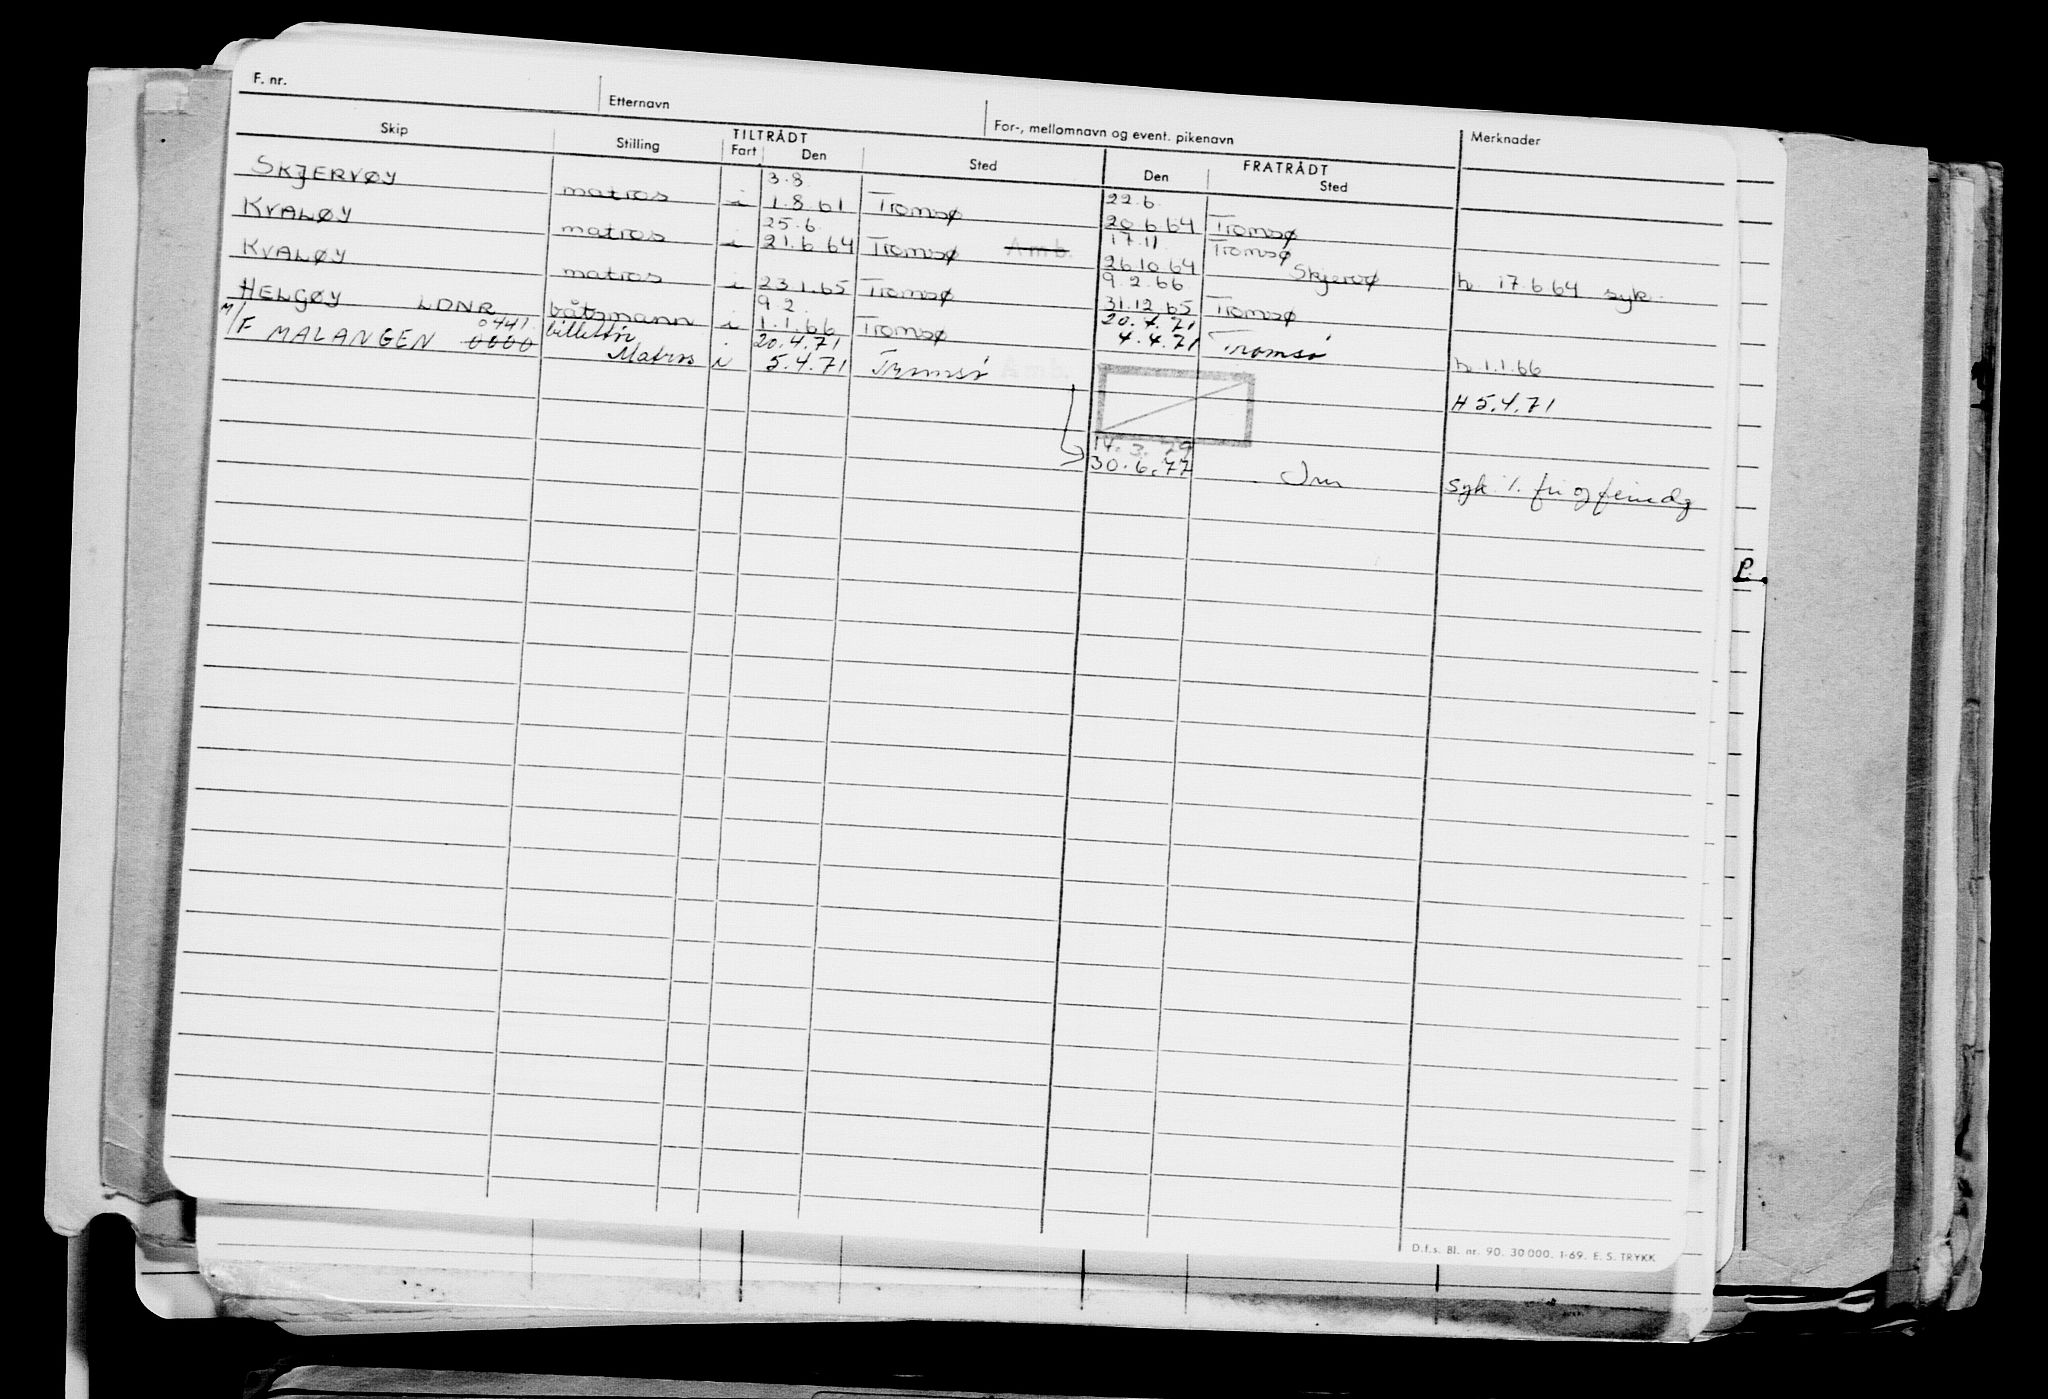 F. nr. Etternavn For-, mellomnavn og event. pikenavn Merknader
Skip Stilling TILTRÅDT Fart Den Sted FRATRÅDT Den Sted
3.8. 22.6.
SKJERVØY matros i 1.8.61 Tromsø 20.6.64 Tromsø
25.6. 17.11 Tromsø
KVALØY matros i 21.6.64 Tromsø Amb. 26.10.64 Skjervø h 17.6.64 syk.
9.2.66
KVALØY matros i 23.1.65 Tromsø 31.12.65 Tromsø
9.2. 20.4.71
HELGØY LDNR båtsmann i 1.1.66 Tromsø 4.4.71 Tromsø h 1.1.66
0441. billettør 20.4.71
M/F MALANGEN 0000 Matros i 5.4.71 Tromsø Amb. H 5.4.71
14.3.79
30.6.77 syk
P.
D.f.s. Bl. nr. 90. 30 000. 1-69. E. S. TRYKK